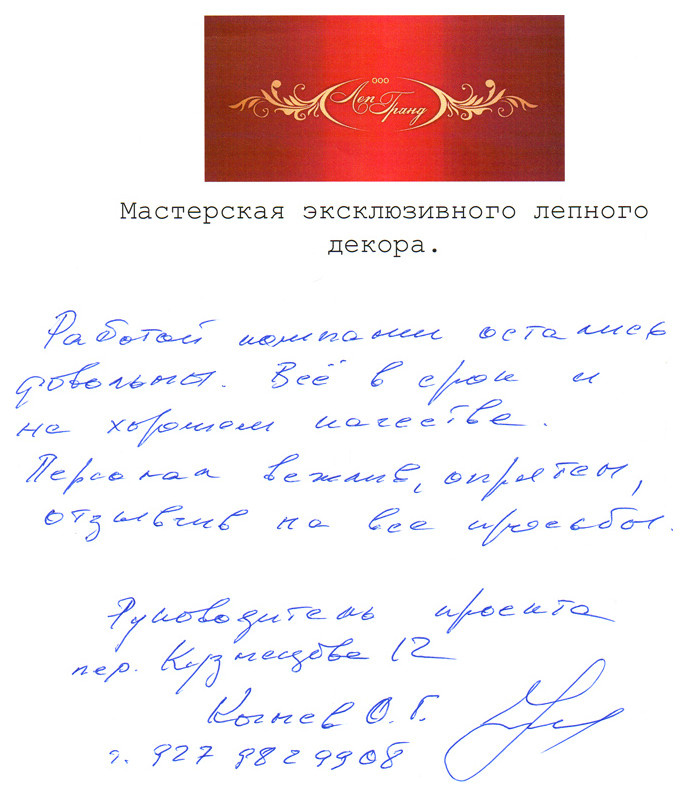 ООО
Леп Гранд
Мастерская эксклюзивного лепного
декора.
Работой компании остались
довольны. Всё в срок и
на хорошем качестве.
Персонал вежлив, опрятен,
отзывчив на все просьбы.
Руководитель проекта
пер. Кузнецова 12
О.Г.
т. 927 982 9908